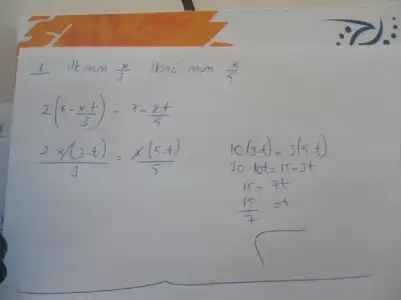 1 ilk mum x/3 ikinci mum x/5
2(x-xt/3) = x-xt/5
2x(3-t)/3 = x(5-t)/5
10(3-t)=3(5-t)
30-10t=15-3t
15=7t
15/7=t